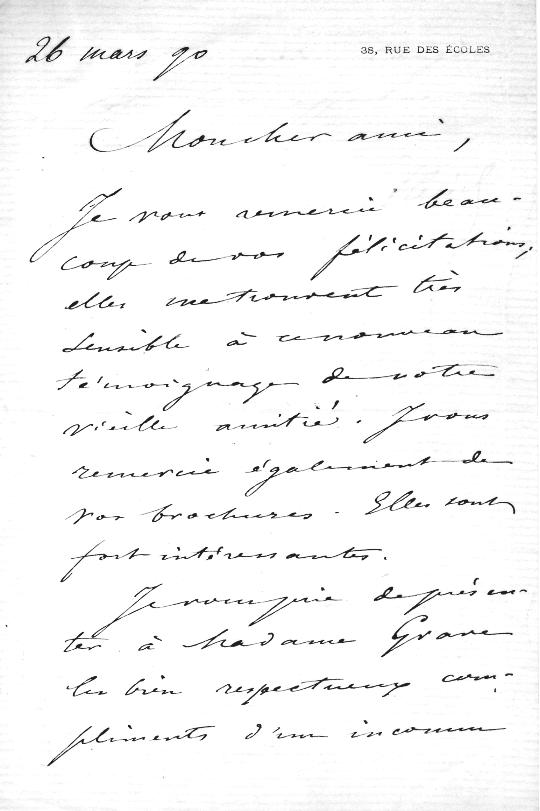 26 mars 90
38, RUE DES ÉCOLES
Mon cher ami,
Je vous remercie beau-
coup de vos félicitations,
elles me trouvent très
sensible à ce nouveau
témoignage de notre
vieille amitié. Je vous
remercie également de
vos brochures. Elles sont
fort intéressantes.
Je vous prie de présen-
ter à Madame Grave
les bien respectueux com-
pliments d'un inconnu